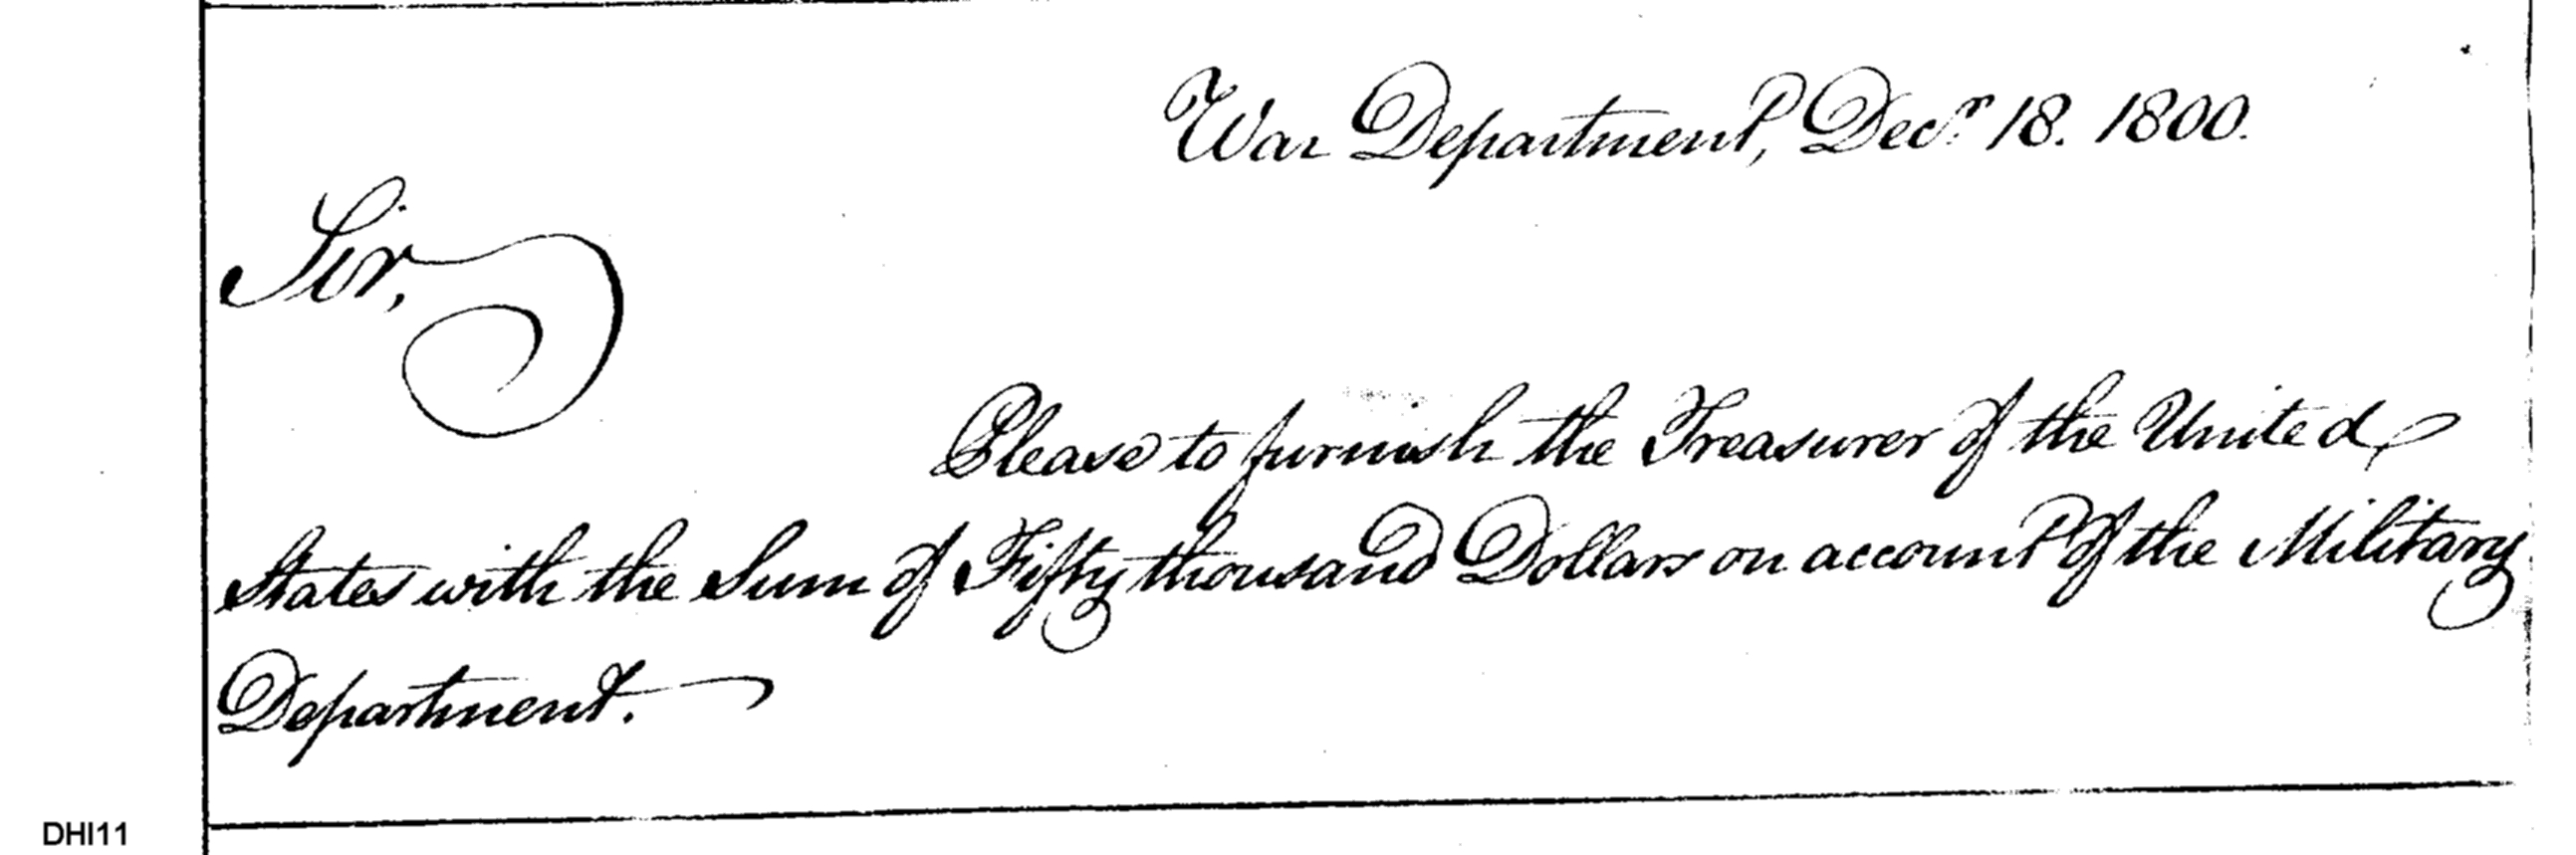 War Department, Decr. 18. 1800.
Sir,
Please to furnish the Treasurer of the United
States with the Sum of Fifty thousand Dollars on account of the Military
Department.
DHI11